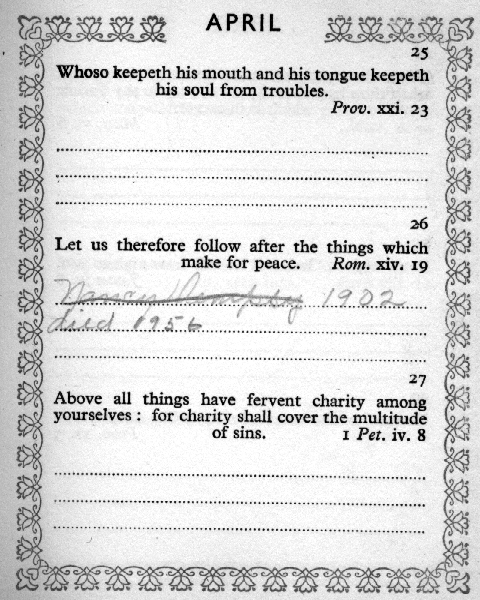 APRIL
25
Whoso keepeth his mouth and his tongue keepeth
his soul from troubles.
Prov. xxi. 23
26
Let us therefore follow after the things which
make for peace. Rom. xiv. 19
Nancy Dempsey 1902
died 1956
27
Above all things have fervent charity among
yourselves : for charity shall cover the multitude
of sins. 1 Pet. iv. 8